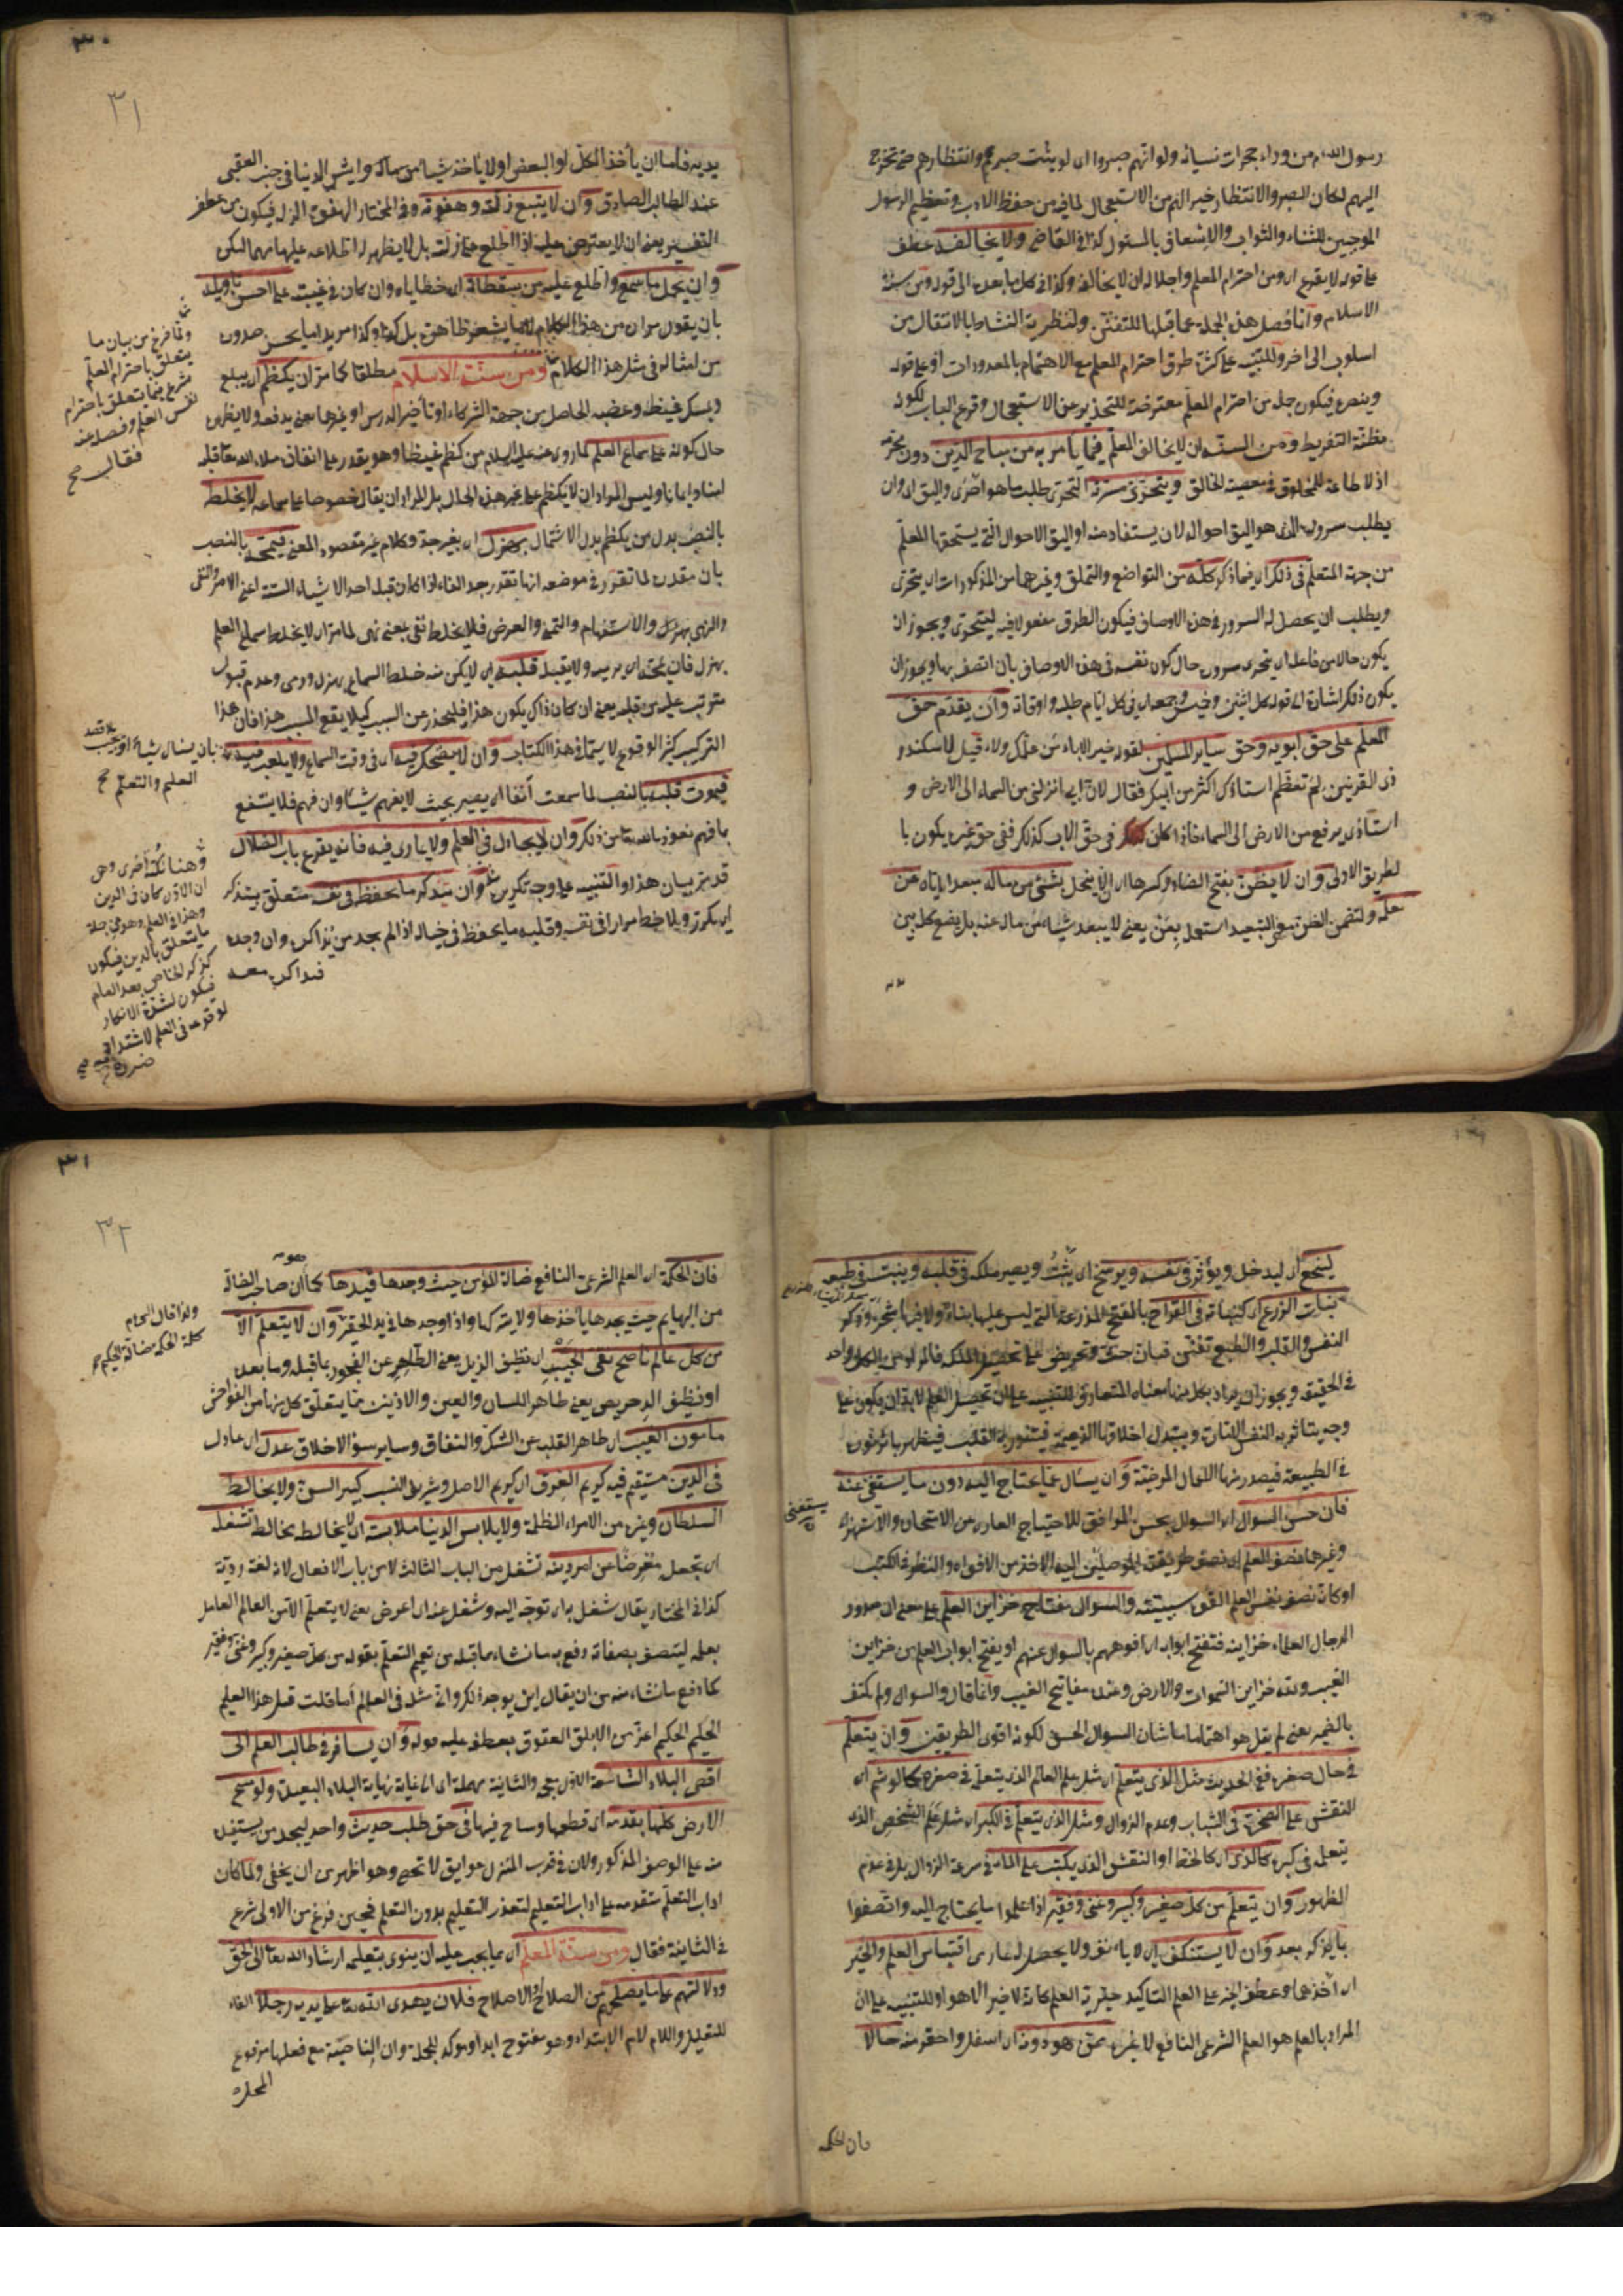 رسول الله من وراء حجرات نسائه ولو انهم صبروا اى لو يثبت صبرهم وانتظارهم حتى تخرج
اليهم لكان الصبر والانتظار خيرا لهم من الاستعجال لما فيه من حفظ الادب وتعظيم الرسول
الموجبين للثناء والثواب والاسعاف بالمسئول كذا فى القاضى ولا يخالفه عطف
على قوله لا يقرع اى ومن احترام المعلم واجلاله ان لا يخالفه وكذا فى كل ما بعده الى قوله ومن سنة
الاسلام وانما فصل هذه الجملة عما قبلها للتفنن ولتطرية النشاط بالانتقال من
اسلوب الى اخر وللتنبيه على كثرة طرق احترام المعلم مع الاهتمام بالمعدودات او على قوله
فيكون جملة من احترام المعلم معترضة للتحذير عن الاستعجال وقرع الباب لكونه
مظنة التفريط ومن السنة ان لا يخالف المعلم فيما يأمر به من مباح الدين دون محرمه
اذ لا طاعة للمخلوق فى معصية الخالق ويتحرى مسرته التحرى طلب ما هو احرى واليق اى وان
يطلب سروره الذى هو اليق احواله لان يستفاد منه او اليق الاحوال التى يستحقها المعلم
من جهة المتعلم فى ذلك اى فيما ذكر كله من التواضع والتملق وغيرهما من المذكورات اى يتحرى
ويطلب ان يحصل له السرور فى هذه الاوصاف فيكون الطرق مفعولا فيه ليتحرى ويجوز ان
يكون حالا من فاعله اى يتحرى سروره حال كون نفسه فى هذه الاوصاف بان اتصف بها ويجوز ان
يكون ذلك اشارة الى قوله كل اثنين وخميس وجمعة اى فى كل ايام طلبه واوقاته وان يقدم حق
المعلم على حق ابويه وحق سائر المسلمين لقوله خير الاباء من علمك ولا قيل لاسكندر
ذى القرنين لم تعظم استاذك اكثر من ابيك فقال لان ابى انزلنى من السماء الى الارض و
استاذى يرفع من الارض الى السماء فاذا كان فى حق الاب كذلك ففى حق غيره يكون با
لطريق الاولى وان لا يظن بفتح الضاد وكسرها اى لا يبخل بشئ من ماله مبعدا اياه عن
معلمه ولتضمن الظن معنى التبعيد استعمل بعن يعنى لا يبعد شيئا من ماله عنه بل يضع كل بين
يديه فاما ان يأخذ الكل او البعض او لا يأخذ شيئا من ماله وايش الدنيا فى جنب العقبى
عند الطالب الصادق وان لا يتبع زلته وهفوته وفى المختار الهفوة الزلة فيكون من عطف
التفسير يعنى ان لا يعترض عليه اذا اطلع على زلته بل لا يظهر له اطلاعه عليها مهما امكن
وان يحمل ما سمع واطلع عليه من سقطاته اى خطاياه وان كان فى غيبته على احسن تأويله
بان يقول مراده من هذا الكلام ليس ما يشعر ظاهره بل كذا وكذا مريدا ما يحسن صدوره
من امثاله فى مثل هذا الكلام ومن سنة الاسلام مطلقا كما مر ان يكظم اى يبلع
ويمسك غيظه وغضبه الحاصل من جهة الشركاء او تأخير الدرس او غيرها يعنى يدفعه ولا يظهره
حال كونه على سماع العلم لما روى عنه عليه السلام من كظم غيظا وهو يقدر على انفاذه ملأ الله تعالى قلبه
امنا وايمانا وليس المراد ان لا يكظم على غير هذه الحال بل المراد ان يقال خصوصا على سماعه لا يخلط
بالنصب بدل من يكظم بدل الاشتمال بهزل اى بغير جد وكلام غير مقصود المعنى فيمجه بالنصب
بان مقدرة لما تقرر فى موضعه انها تقدر بعد الفاء اذا كان قبله احد الاشياء الستة اعنى الامر والنفى
والنهى والاستفهام والتمنى والعرض فلا يخلط نفى بمعنى نهى لما مر اى لا يخلط سماع العلم
بهزل فان يمجه اى يرميه ولا يقبله قلبه اى لا يكن منه خلط السماع بهزل ورمى وعدم قبول
مترتب عليه من قبله يعنى ان كان ذاك يكون هذا فليحذر عن السبب كيلا يقع المسبب هذا فان هذا
التركيب كثير الوقوع لا سيما فى هذا الكتاب وان لا يضحك فيه اى فى وقت السماع ولا يلعب فيه
فيموت قلبه بالنصب لما سمعت آنفا اى يصير بحيث لا يفهم شيئا وان فهم فلا ينتفع
بما فهم نعوذ بالله تعالى من ذلك وان لا يجادل فى العلم ولا يمارى فيه فانه يقرع باب الضلال
قد مر بيان هذا والتنبيه على وجه تكريره وان يتذكر ما يحفظ فى نفسه متعلق بيتذكر
اى يكرر ويلاحظ مرارا فى نفسه وقلبه ما يحفظ فى خياله اذا لم يجد من يذاكره وان وجده
فيذاكره معه
ولما فرغ من بيان ما
يتعلق باحترام المعلم
شرع فيما يتعلق باحترام
نفس العلم وفصله عنه
فقال صح
بان ينال شيئا
العلم والتعلم صح
وهنا نكتة اخرى وهى
ان الاول كان فى الدين
وهذا فى العلم وهو من جملة
ما يتعلق بالدين فيكون
كذكر الخاص بعد العام
فيكون لشدة الانكار
لوقوعه فى العلم لاشتداد
ضرره صح
٣٠
٣١
لينجع اى ليدخل ويؤثر فى نفسه ويرسخ اى يثبت ويصير ملكة فى قلبه وينبت فى طبعه
نبات الزرع اى كنباته فى القراح بالفتح المزرعة التى ليس عليها بناء ولا فيها شجر وذكر
النفس والقلب والطبع تفنن فى بيان حث وتحريض على تحصيل الملكة فالمراد من الكل واحد
فى الحقيقة ويجوز ان يراد بكل منها معناه المتعارف للتنبيه على ان تحصيل العلم لا بد ان يكون على
وجه يتأثر به النفس الامارة ويتبدل اخلاقها الذميمة فيتنور به القلب فيظهر
فى الطبيعة فيصدر منها الاعمال المرضية وان يسأل عما يحتاج اليه دون ما يستغنى عنه
فان حسن السؤال اى السؤال بحسن الموافق للاحتياج العارى من الامتحان والاستهزاء
وغيرها نصف العلم اى نصف طريقته الموصلتين اليه الاخذ من الافواه والنظر فى الكتب
او كانه نصف نفس العلم لقوة سببيته والسؤال مفتاح خزاين العلم على معنى ان صدور
الرجال العلماء خزاينه فتفتح ابوابه اى افواههم بالسؤال عنهم او يفتح ابواب العلم من خزاين
الغيب ولله خزاين السموات والارض وعنده مفاتيح الغيب وانما قال والسؤال ولم يكتف
بالضمير يعنى لم يقل هو اهتماما بشان السؤال الحسن لكونه اقوى الطريقين وان يتعلم
فى حال صغره ففى الحديث مثل الذى يتعلم اى مثل علم العالم الذى يتعلم فى صغره كالوشم اى
النقش على الصخرة فى الثبات وعدم الزوال ومثل الذى يتعلم فى الكبر اى مثل علم الشخص الذى
يتعلم فى كبره كالذى اى كالخط او النقش الذى يكتب على الماء فى سرعة الزوال بل فى عدم
الظهور وان يتعلم من كل صغير وكبير وغنى وفقير اذا علموا ما يحتاج اليه واتصفوا
بما يذكر بعد وان لا يستنكف اى لا يأنف ولا يحصل له عار من اقتباس العلم والخير
اى اخذهما وعطف الخير على العلم للتأكيد خيرية العلم كانه لا خير الا هو او للتنبيه على ان
المراد بالعلم هو العلم الشرعى النافع لا غير ممن هو دونه اى اسفل واحقر منه حالا
فان الحكمة
يستغنى
فان الحكمة اى العلم الشرعى النافع ضالة المؤمن حيث وجدها قيدها كما ان صاحب الضالة
من البهايم حيث يجدها يأخذها ولا يتركها واذا وجدها فى يد الحقير وان لا يتعلم الا
من كل عالم ناصح نقى الجيب اى نظيف الذيل يعنى الطاهر عن الفجور بما قبله وما بعده
او نظيف الدخريص يعنى طاهر اللسان والعين والاذنين مما يتعلق كل منها من الفواحش
مأمون الغيب اى طاهر القلب عن الشك والنفاق وساير سوء الاخلاق عدل اى عادل
فى الدين مستقيم فيه كريم العرق اى كريم الاصل وشريف النسب كبير السن ولا يخالط
السلطان وغيره من الامراء الظلمة ولا يلابس الدنيا ملابسة اى لا يخالط مخالطة تشغله
اى تجعله معرضا عن امر دينه تشغل من الباب الثالث لا من باب الافعال لانه لغة ردية
كذا فى المختار يقال شغل به اى توجه اليه وشغل عنه اى اعرض يعنى لا يتعلم الا من العالم العامل
بعلمه ليتصف بصفاته دفع به ما نشاء ما قبله من تعميم التعلم بقوله من كل صغير وكبير وغنى وفقير
كما دفع ما نشاء منه من ان يقال اين يوجد ذلك وانه شذ فى العالم اما قلت قبل هذا العليم
الحليم الحكيم اعز من الابلق العقوق بعطف عليه قوله وان يسافر فى طلب العلم الى
اقصى البلاد الشاسعة الاول بمعجمة والثانية مهملة اى الى غاية نهاية البلاد البعيدة ولو مسح
الارض كلها بقدمه اى قطعها وساح فيها فى حق طلب حديث واحد ليجد من يستفيد
منه على الوصف المذكور ولان فى قرب المنزل عوايق لا تحصى وهو اظهر من ان يخفى ولما كان
اداب التعلم متقدمة على اداب التعليم لتعذر التعليم بدون التعلم فحين فرغ من الاولى شرع
فى الثانية فقال ومن سنة المعلم اى مما يجب عليه ان ينوى بتعليمه ارشاد الله تعالى الخلق
ودلالتهم على ما يصلحهم من الصلاح او الاصلاح فلان يهدى الله تعالى على يديه رجلا الفاء
للتعليل واللام لام الابتداء وهو مفتوح ابدا ومؤكد للجملة وان الناصبة مع فعلها مرفوع
المحل
ولذا قال الحكماء
كلمة الحكمة ضالة الحكيم صح
٣١
٣٢